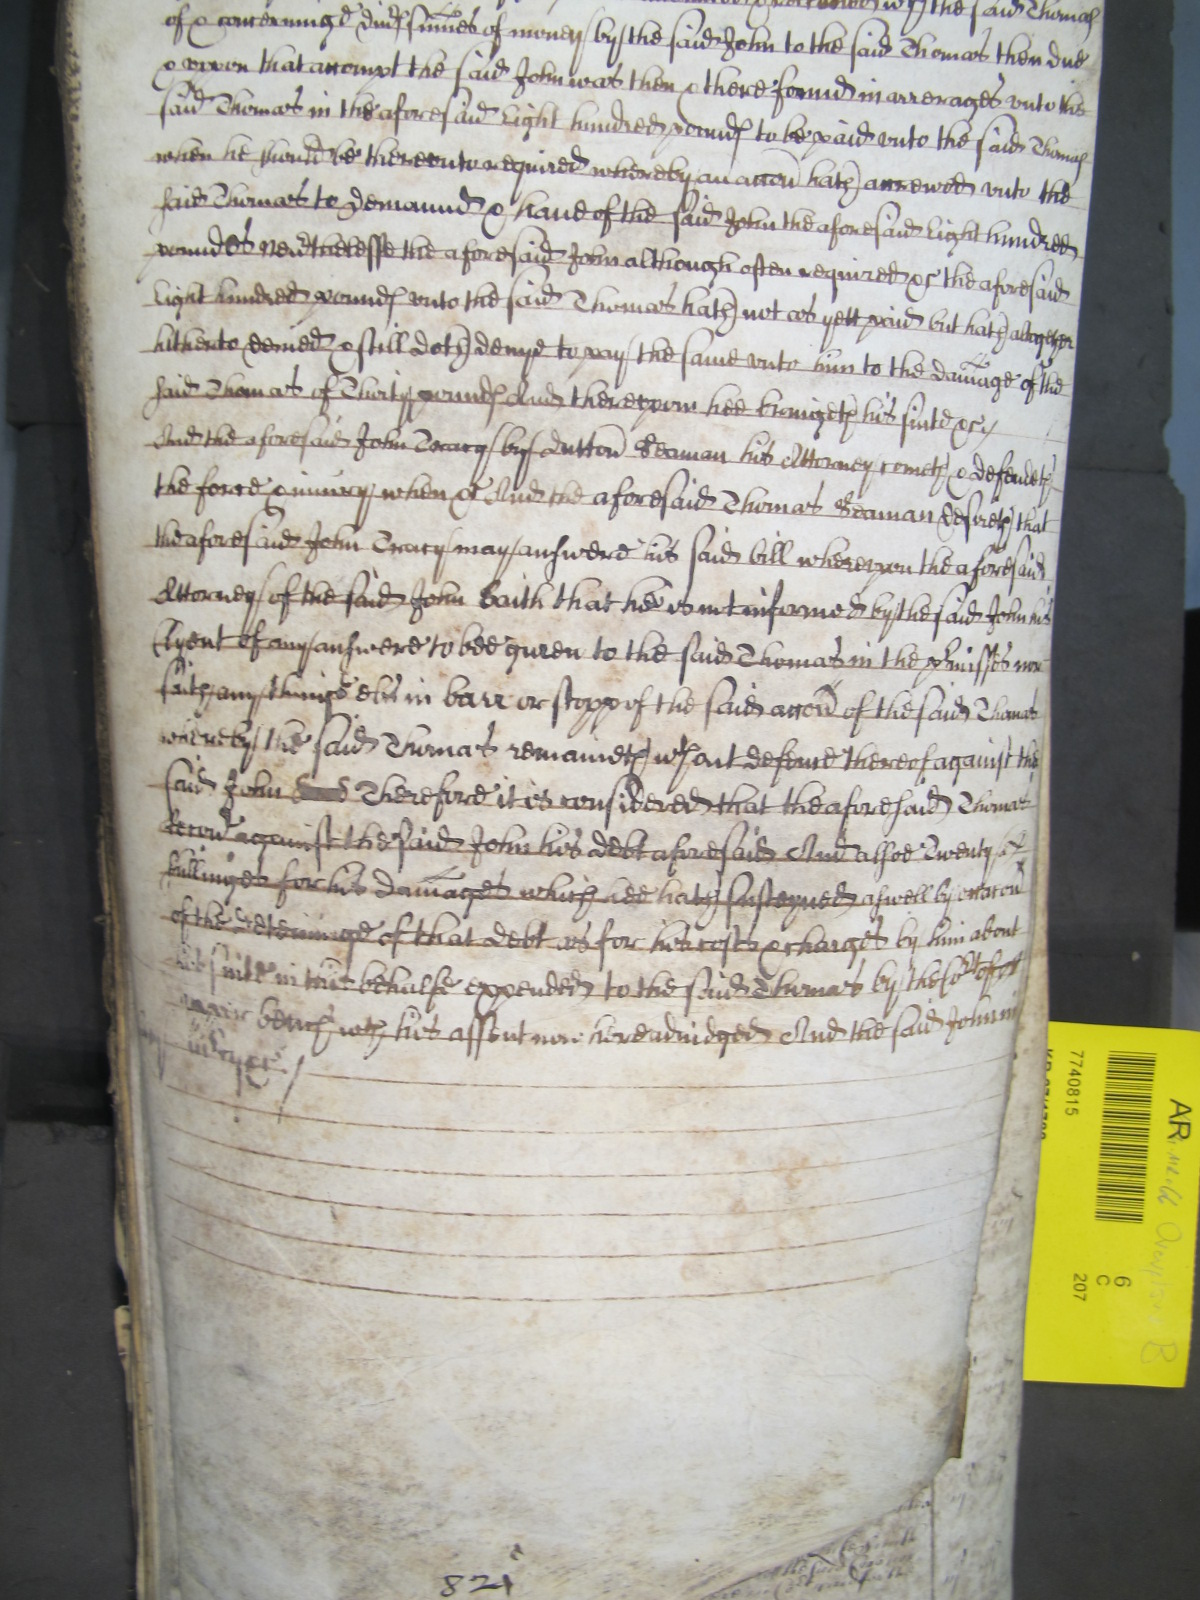 the said Thomas
of & concerninge divs sumes of money by the said John to the said Thomas then due
& uppon that accompt the said John was then & there found in arrerages unto the
said Thomas in the aforesaid Eight hundred pounds to be paid unto the said Thomas
when he should be thereunto required whereby an accon hath accrewed unto the
said Thomas to demaund & have of the said John the aforesaid Eight hundred
poundes Nevthelesse the aforesaid John although often required &c the aforesaid
Eight hundred pounds unto the said Thomas hath not as yett paid but hath altogether
hitherto denied & still doth deny to pay the same unto him to the damage of the
said Thomas of Thirty pounds And thereupon hee bringeth his suite &c
And the aforesaid John Tracy by Dutton Seaman his Attorney cometh & defendeth
the force & iniury when &c And the aforesaid Thomas Seaman desireth that
the aforesaid John Tracy may answere his said bill whereupon the aforesaid
Attorney of the said John Saith that hee is not informed by the said John his
Clyent of any answere to bee given to the said Thomas in the pmisses nor
saith any thinge els in barr or stopp of the said accon of the said Thomas
whereby the said Thomas remaineth wthout defence thereof against the
said John Therefore it is considered that the aforesaid Thomas
Recov against the said John his debt aforesaid And alsoe Twenty
shillinges for his damages which hee hath susteyned aswell by occacon
of the deteininge of that debt as for his costs & charges by him about
his suite in this behalfe expended to the said Thomas by the Cort of
bench wth his assent now here adiudged And the said John in
mercy &c
821
7740815
AR
6
C
207